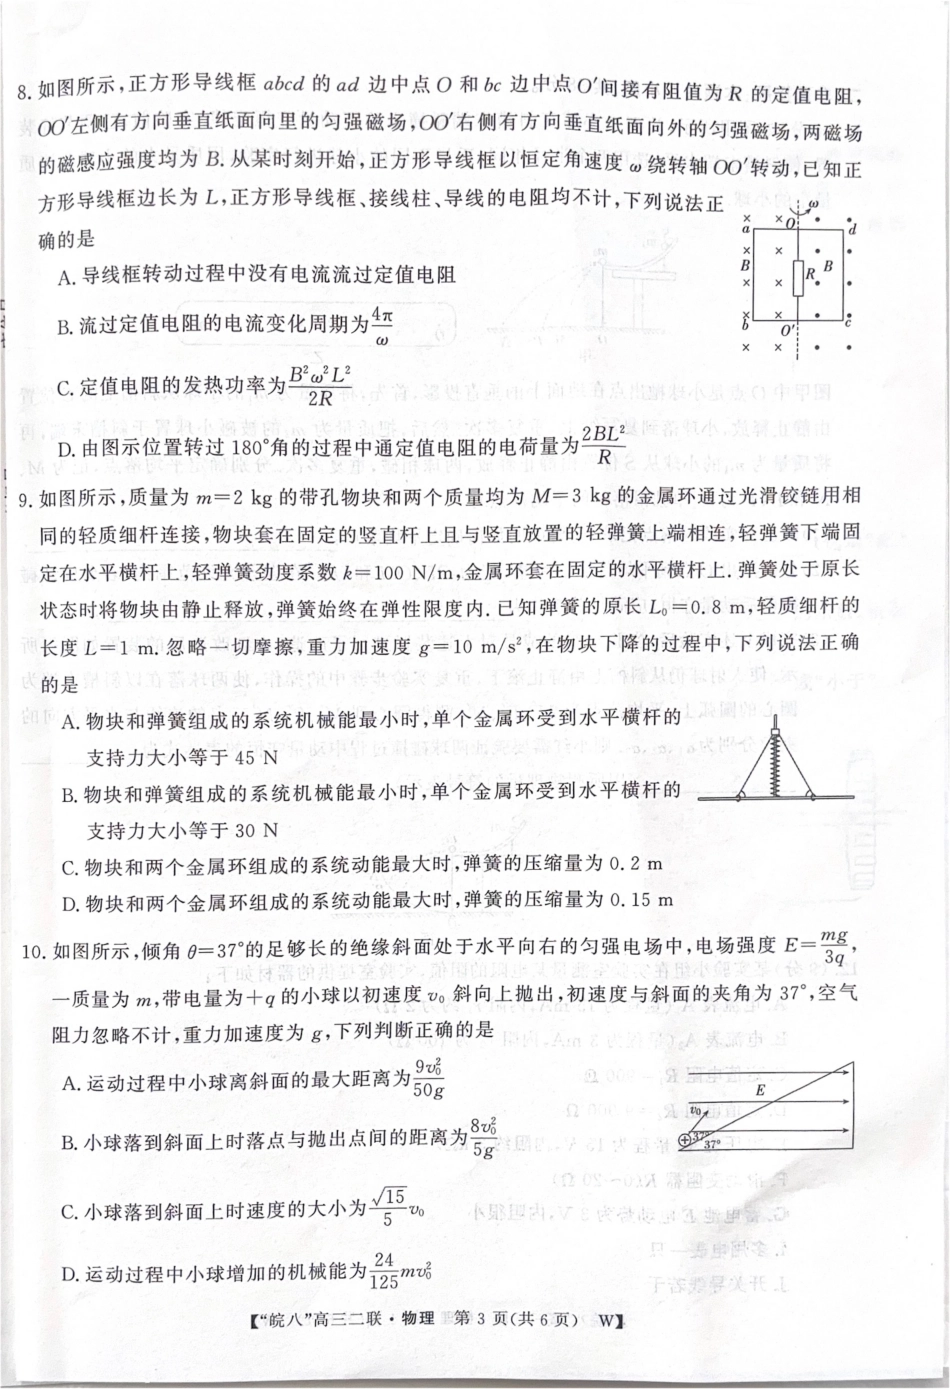 8. 如图所示,正方形导线框 abcd 的 ad 边中点 O 和 bc 边中点 O′间接有阻值为 R 的定值电阻,
OO′左侧有方向垂直纸面向里的匀强磁场,OO′右侧有方向垂直纸面向外的匀强磁场,两磁场
的磁感应强度均为 B. 从某时刻开始,正方形导线框以恒定角速度 ω 绕转轴 OO′转动,已知正
方形导线框边长为 L,正方形导线框、接线柱、导线的电阻均不计,下列说法正
确的是
A. 导线框转动过程中没有电流流过定值电阻
B. 流过定值电阻的电流变化周期为4π/ω
C. 定值电阻的发热功率为B²ω²L²/2R
D. 由图示位置转过 180°角的过程中通定值电阻的电荷量为2BL²/R
ω
O
a
d
B
R
B
b
O′
c
9. 如图所示,质量为 m=2 kg 的带孔物块和两个质量均为 M=3 kg 的金属环通过光滑铰链用相
同的轻质细杆连接,物块套在固定的竖直杆上且与竖直放置的轻弹簧上端相连,轻弹簧下端固
定在水平横杆上,轻弹簧劲度系数 k=100 N/m,金属环套在固定的水平横杆上. 弹簧处于原长
状态时将物块由静止释放,弹簧始终在弹性限度内. 已知弹簧的原长 L₀=0.8 m,轻质细杆的
长度 L=1 m. 忽略一切摩擦,重力加速度 g=10 m/s²,在物块下降的过程中,下列说法正确
的是
A. 物块和弹簧组成的系统机械能最小时,单个金属环受到水平横杆的
支持力大小等于 45 N
B. 物块和弹簧组成的系统机械能最小时,单个金属环受到水平横杆的
支持力大小等于 30 N
C. 物块和两个金属环组成的系统动能最大时,弹簧的压缩量为 0.2 m
D. 物块和两个金属环组成的系统动能最大时,弹簧的压缩量为 0.15 m
10. 如图所示,倾角 θ=37°的足够长的绝缘斜面处于水平向右的匀强电场中,电场强度 E=mg/3q,
一质量为 m,带电量为+q 的小球以初速度 v₀ 斜向上抛出,初速度与斜面的夹角为 37°,空气
阻力忽略不计,重力加速度为 g,下列判断正确的是
A. 运动过程中小球离斜面的最大距离为9v₀²/50g
B. 小球落到斜面上时落点与抛出点间的距离为8v₀²/5g
C. 小球落到斜面上时速度的大小为√15/5 v₀
D. 运动过程中小球增加的机械能为24/125 mv₀²
E
v₀
37°
37°
【“皖八”高三二联·物理 第 3 页(共 6 页) W】